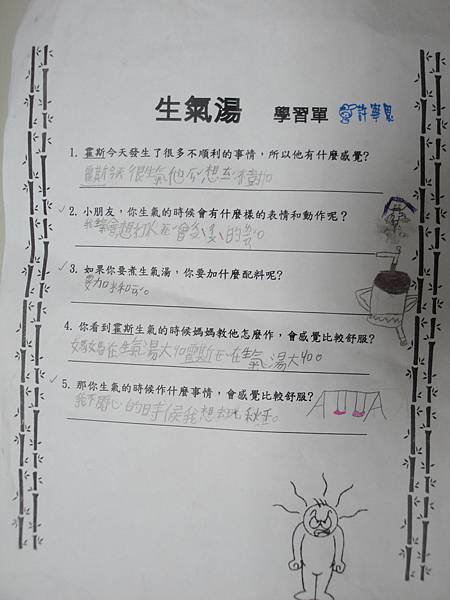 生氣湯 學習單
1. 霍斯今天發生了很多不順利的事情，所以他有什麼感覺？
霍斯今天很生氣他
2. 小朋友，你生氣的時候會有什麼樣的表情和動作呢？
想打人 會
3. 如果你要煮生氣湯，你要加什麼配料呢？
要加
4. 你看到霍斯生氣的時候媽媽教他怎麼作，會感覺比較舒服？
媽媽在生氣湯大ㄐㄧㄠ霍斯 在生氣湯大ㄐㄧㄠ。
5. 那你生氣的時候作什麼事情，會感覺比較舒服？
我不開心的時候我想去